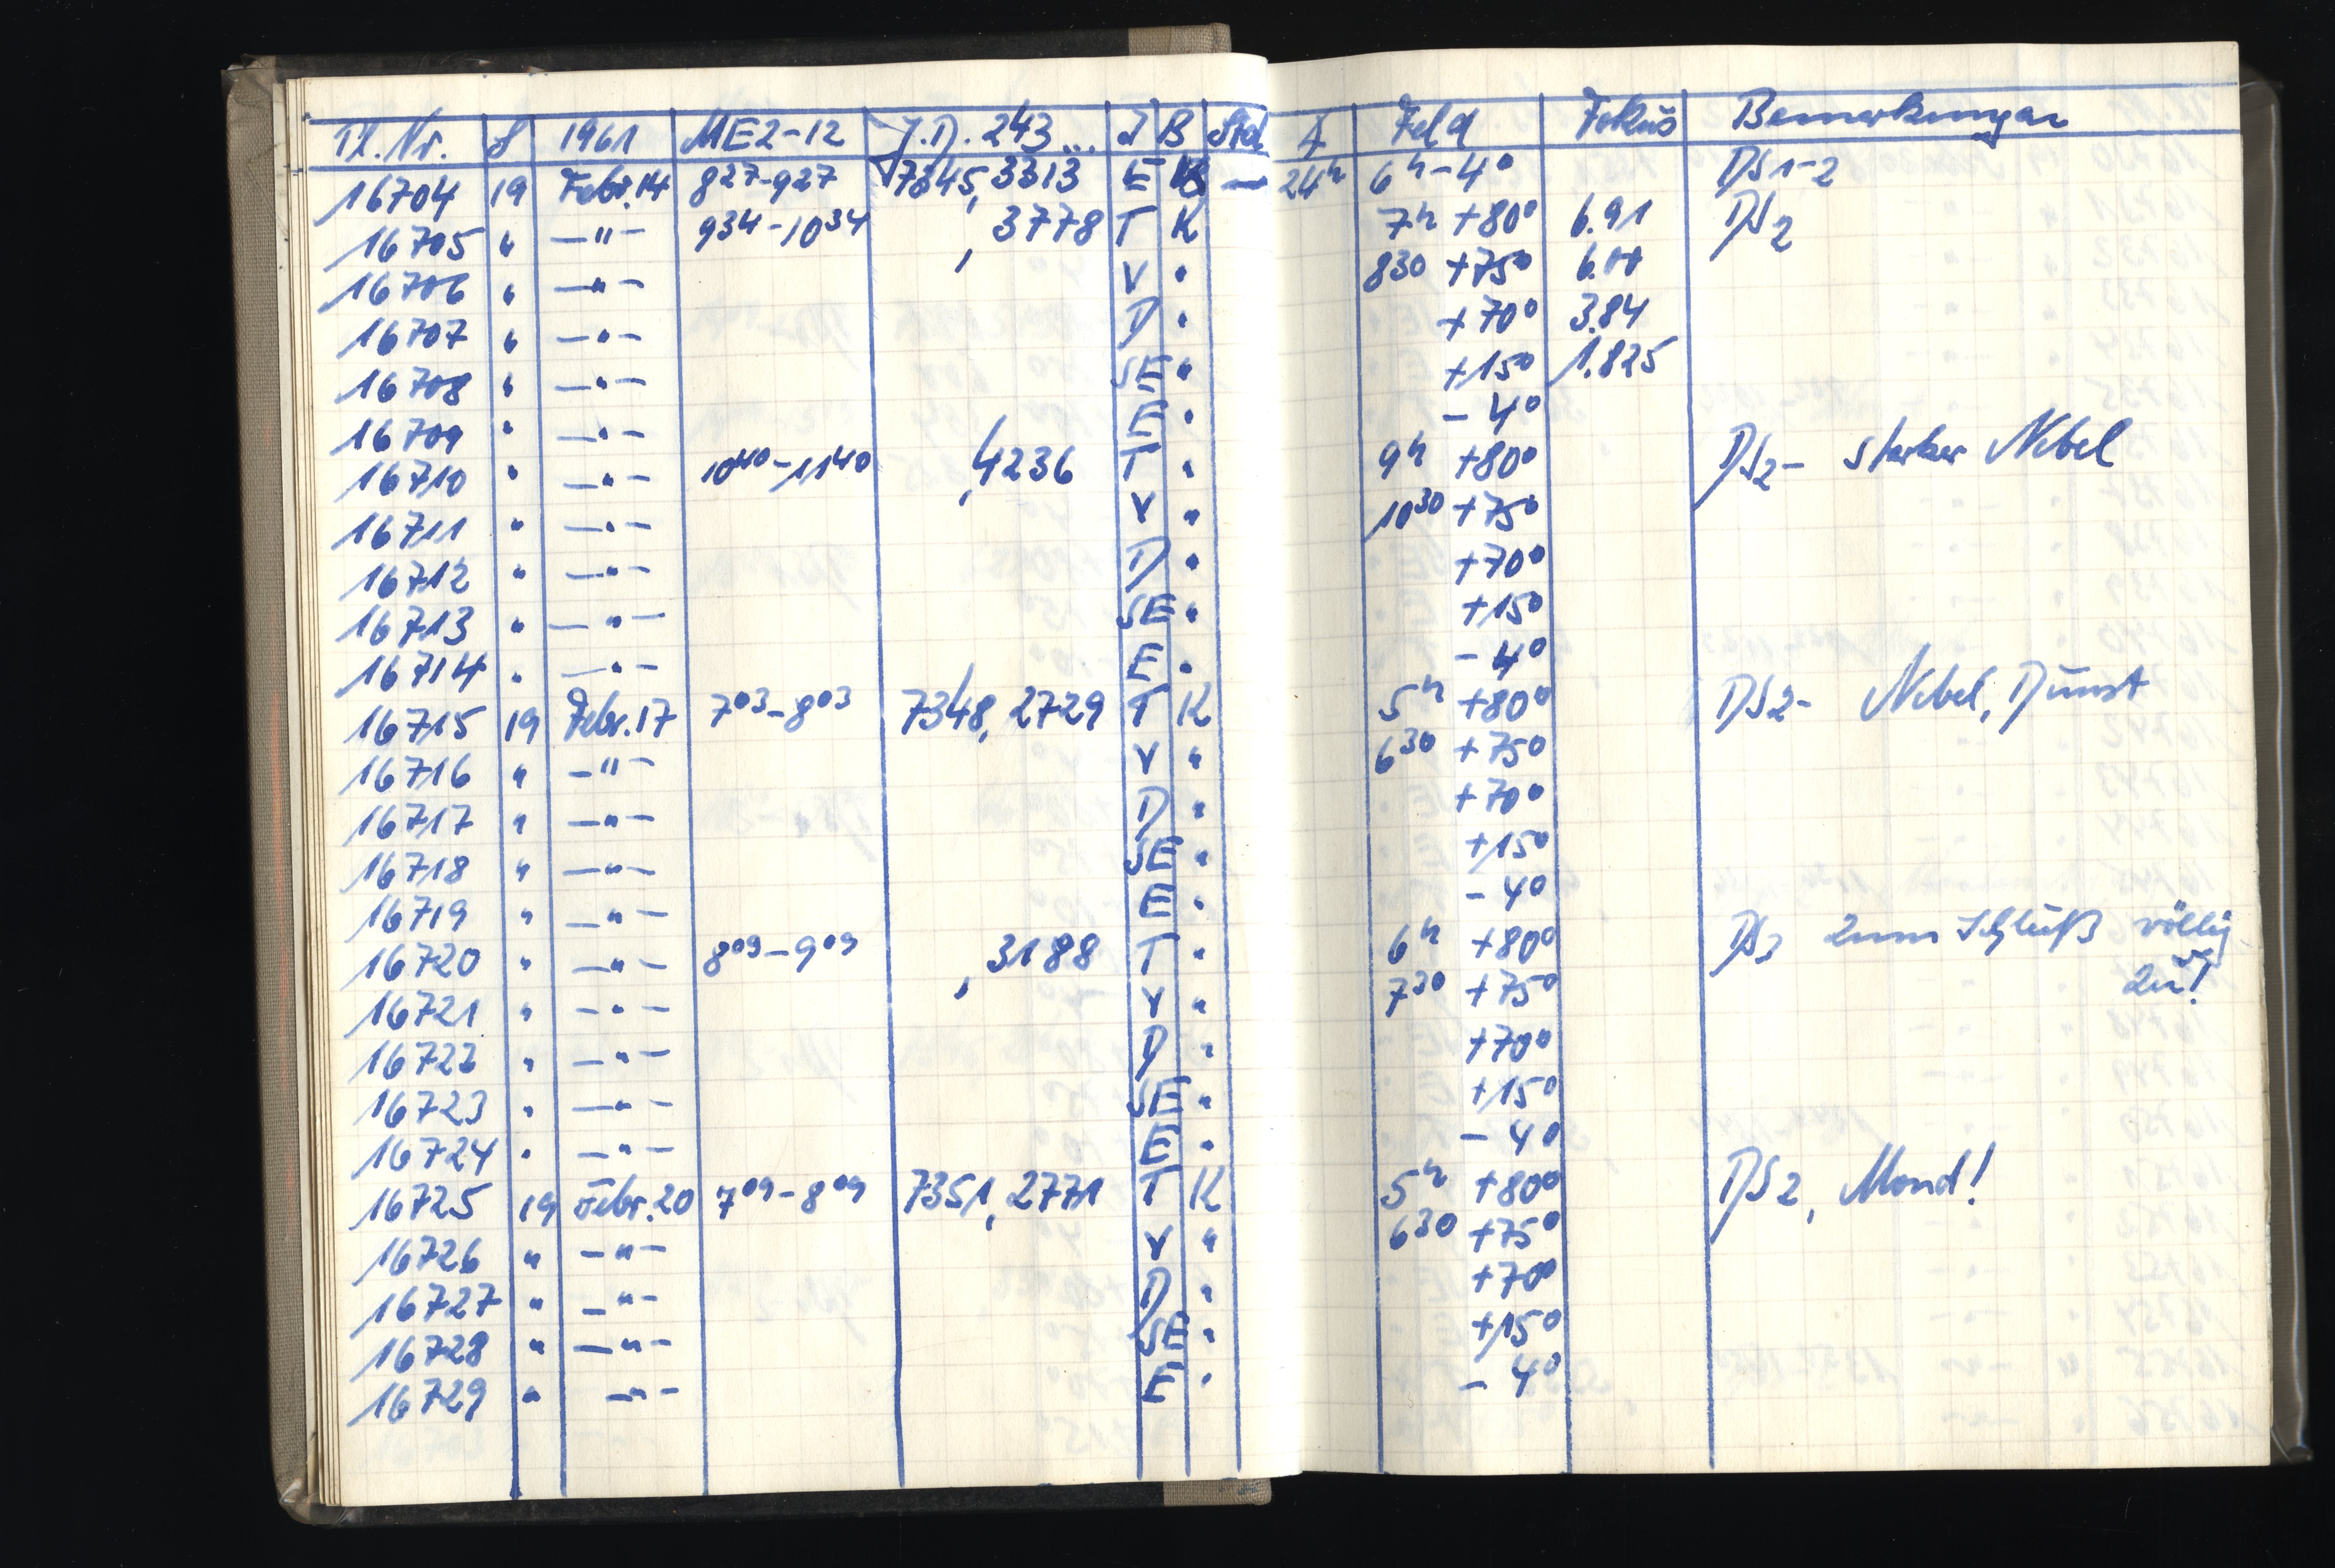 Pl. Nr. S 1961 MEZ-12 J.D. 243... I B Std A Feld Fokus Bemerkungen
16704 19 Febr. 14 8 27 - 9 27 7345,3313 E K — 24h 6h -4° DS1-2
16705 " —"— 9 34 - 10 34 ,3778 T K 7h +80° 6.91 DS2
16706 " —"— , V " 8 30 +75° 6.00
16707 " —"— D " +70° 3.84
16708 " —"— SE " +15° 1.825
16709 " —"— E " -4°
16710 " —"— 10 40 - 11 40 ,4236 T " 9h +80° DS2- starker Nebel
16711 " —"— , V " 10 30 +75°
16712 " —"— D " +70°
16713 " —"— SE " +15°
16714 " —"— E " -4°
16715 19 Febr. 17 7 03 - 8 03 7348,2729 T K 5h +80° DS2- Nebel, Dunst
16716 " —"— V " 6 30 +75°
16717 " —"— D " +70°
16718 " —"— SE " +15°
16719 " —"— E " -4°
16720 " —"— 8 09 - 9 09 ,3188 T " 6h +80° DS3 zum Schluß völlig
16721 " —"— , V " 7 30 +75° zu!
16722 " —"— D " +70°
16723 " —"— SE " +15°
16724 " —"— E " -4°
16725 19 Febr. 20 7 09 - 8 09 7351,2771 T K 5h +80° DS2, Mond!
16726 " —"— V " 6 30 +75°
16727 " —"— D " +70°
16728 " —"— SE " +15°
16729 " —"— E " -4°